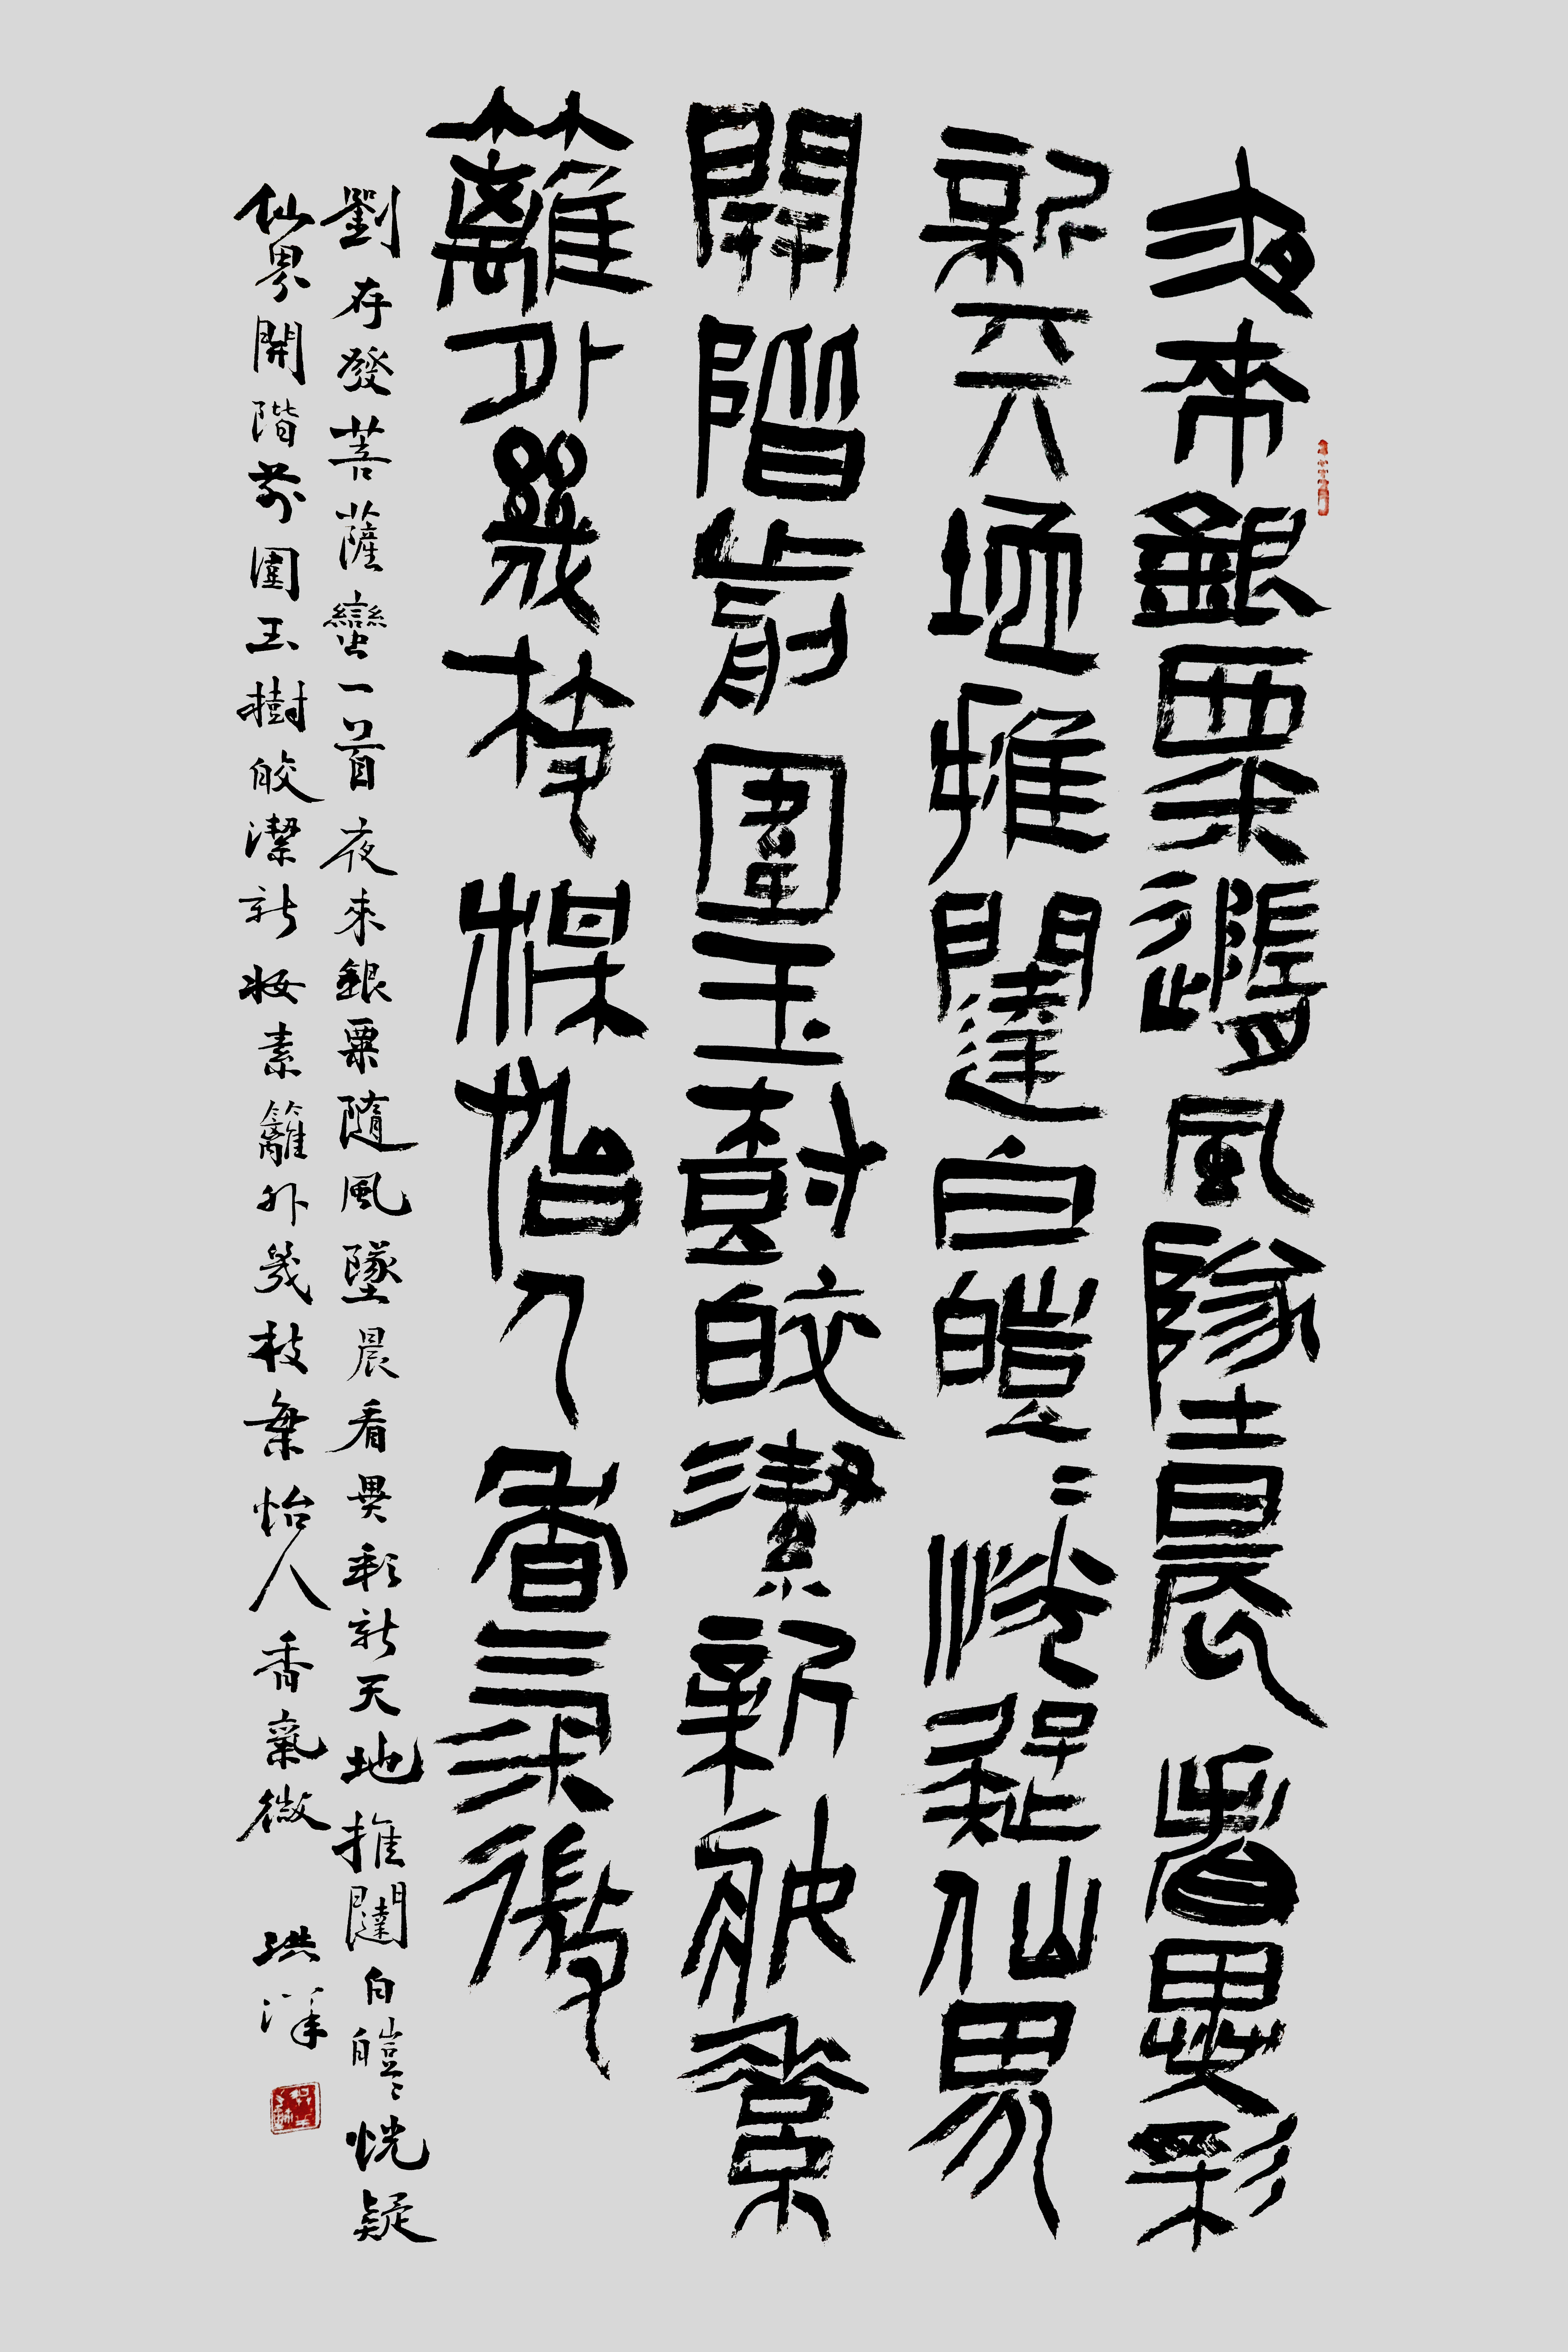 夜來銀粟隨風墜晨看異彩
新天地推闥白皚々恍疑仙界
開階前圍玉樹皎潔新妝素
籬外幾枝棐怡人香氣微
劉存發菩薩蠻一首夜來銀粟隨風墜晨看異彩新天地推闥白皚々恍疑
仙界開階前圍玉樹皎潔新妝素籬外幾枝棐怡人香氣微 洪洋